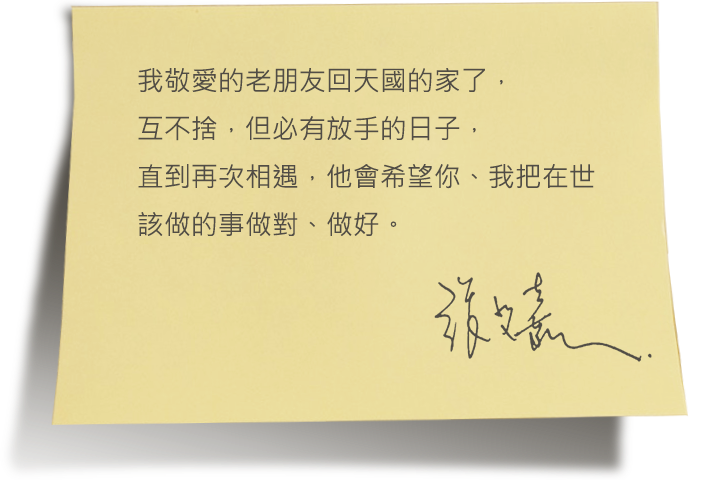 我敬愛的老朋友回天國的家了，
互不捨，但必有放手的日子，
直到再次相遇，他會希望你、我把在世
該做的事做對、做好。